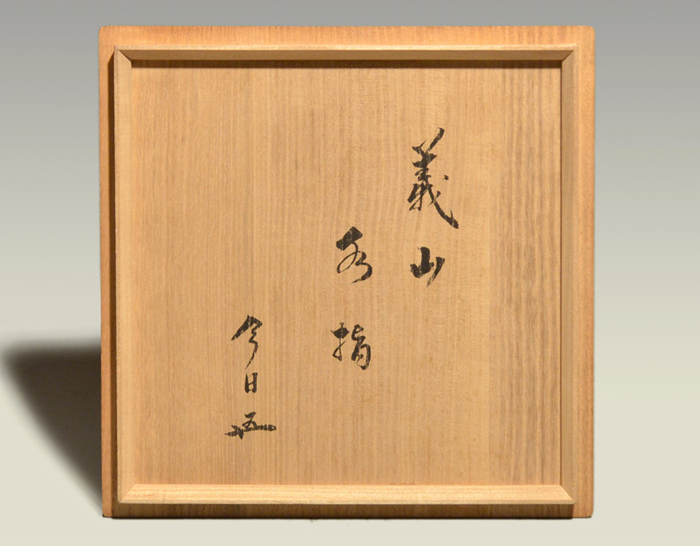 義山
水指
今日